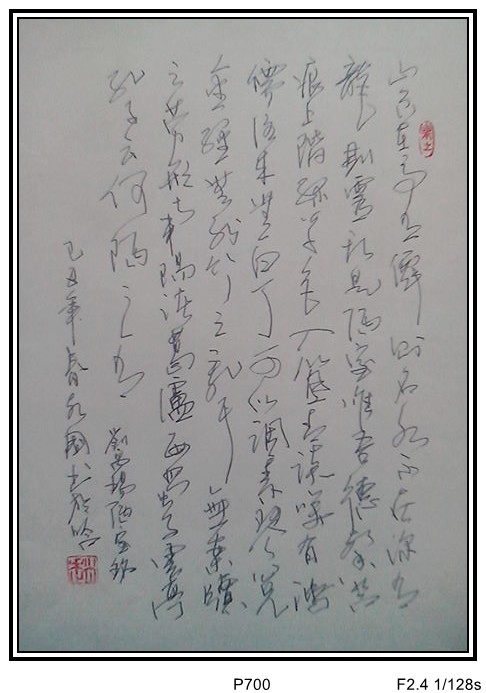 山不在高有僊則名水不在深有
龍則靈斯是陋室惟吾德馨苔
痕上階綠草色入簾青談笑有鴻
儒往來無白丁可以調素琴閱
金經無絲竹之亂耳無案牘
之勞形南陽諸葛廬西蜀子雲亭
孔子云何陋之有
劉禹錫陋室銘
己丑年春永國書於
P700
F2.4 1/128s